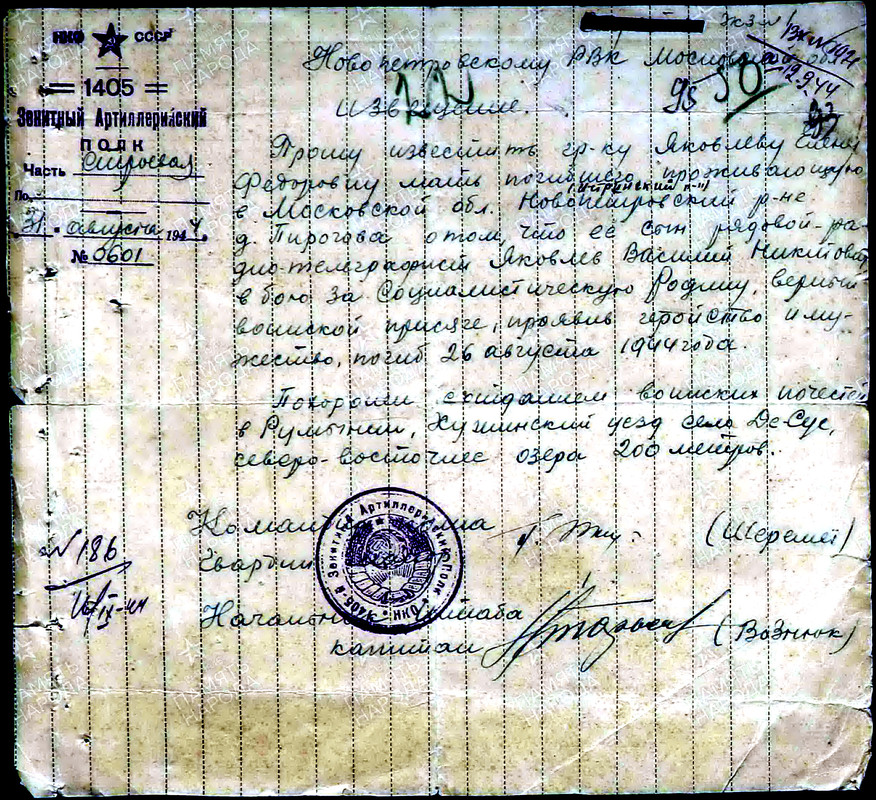 НКО СССР
= 1405 =
Зенитный Артиллерийский
ПОЛК
Часть Строевая
По
31 августа 1944.
№ 0601
экз-N 1
Вх N
12.9.44
Новопетровскому РВК Московской обл
95 50
Извещение.
Прошу известить гр-ку Яковлеву Елену
Федоровну мать погибшего, проживающую
(Истринский р-н)
в Московской обл. Новопетровский р-не
д. Пирогова о том, что её сын рядовой-ра-
дио-телеграфист Яковлев Василий Никитович
в бою за Социалистическую Родину, верный
воинской присяге, проявив геройство и му-
жество, погиб 26 августа 1944 года.
Похоронен с отданием воинских почестей
в Румынии, Хушинский уезд село Де-Сус,
северо-восточнее озера 200 метров.
Командир полка
Гвардии (Шеремет)
Начальник Штаба
капитан (Вознюк)
Зенитный Артиллерийский Полк • НКО • 1405-й
N 186
16/IX-44
ПАМЯТЬ НАРОДА